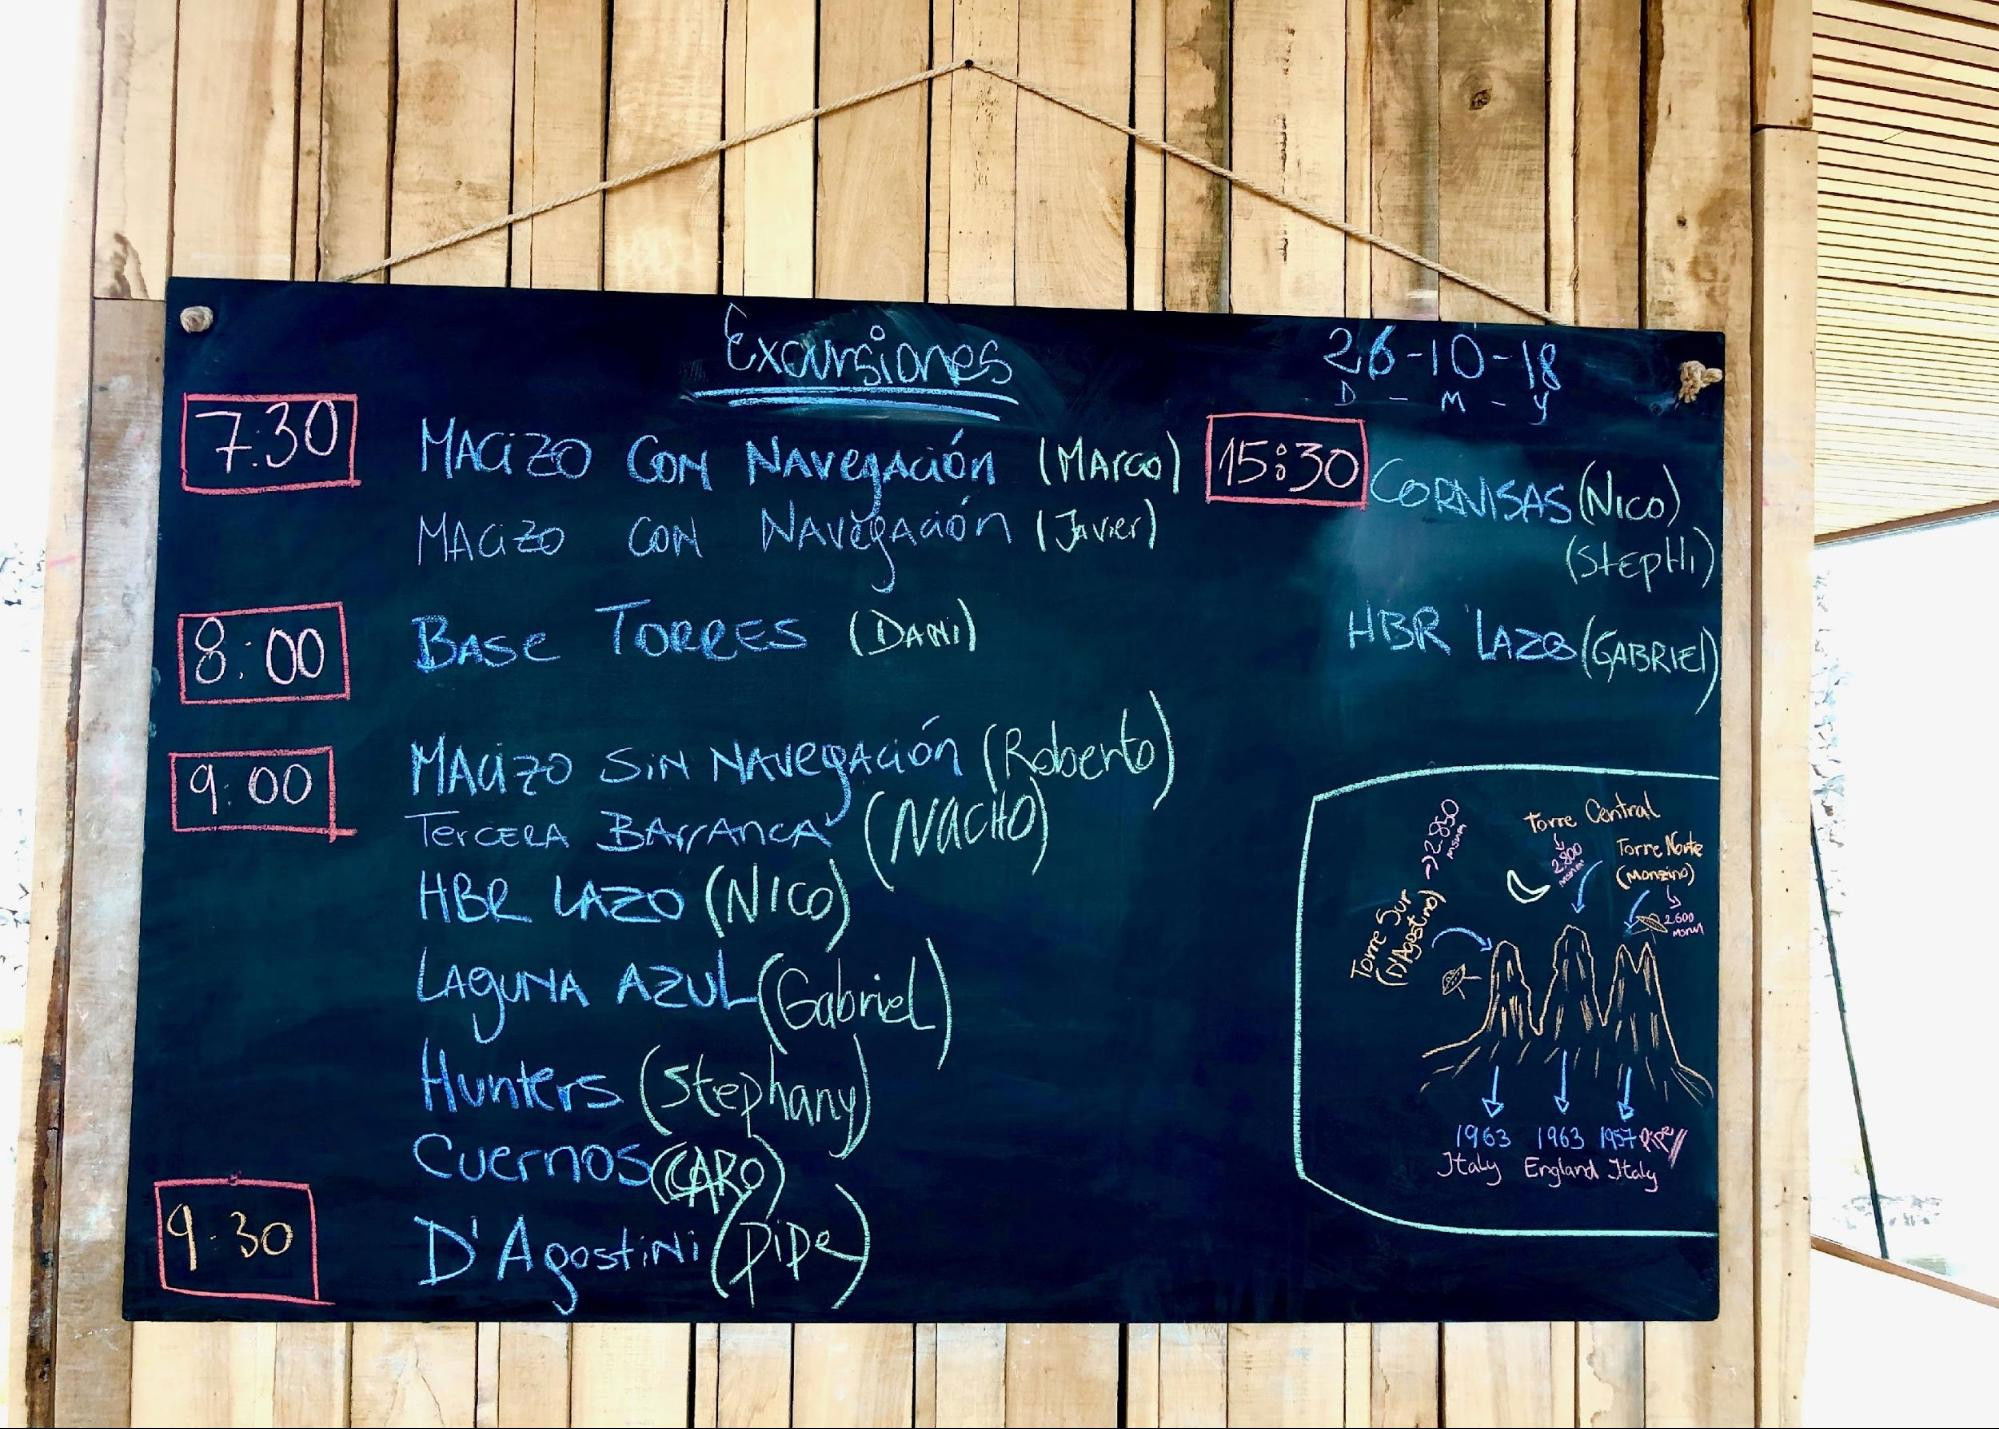 Excursiones
26-10-18
D - M - Y
7:30
MACiZO CON NAVegACión (MArco)
MACiZO CON NAVegACión (Javier)
8:00
BASe TORRES (DANi)
9:00
MACiZO SiN NAVegACión (Roberto)
TerCERA BArrANCA (NACHO)
HBR LAZO (NICO)
LAgUNA AZUL (Gabriel)
Hunters (Stephany)
Cuernos (CARO)
9:30
D'AgostiNi (pipe)
15:30
CORNISAS (NICO)
(StepHi)
HBR LAZO (GABRIEl)
Torre Sur → 2.850 msnm
(D'Agostino)
Torre Central
2.800
msnm
Torre Norte
(Monzino)
2.600
msnm
1963 1963 1957
Italy England Italy